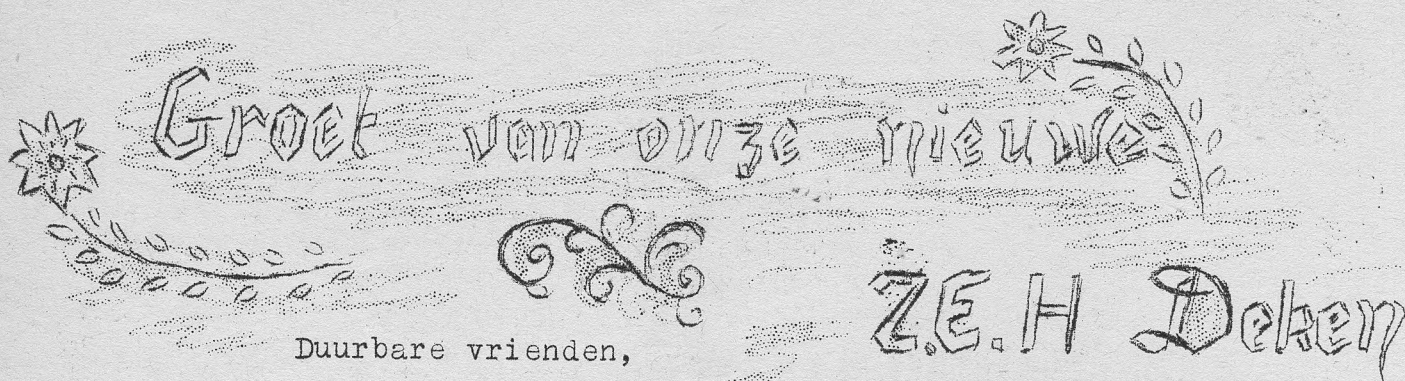 Groet van onze nieuwe
Z.E.H Deken
Duurbare vrienden,